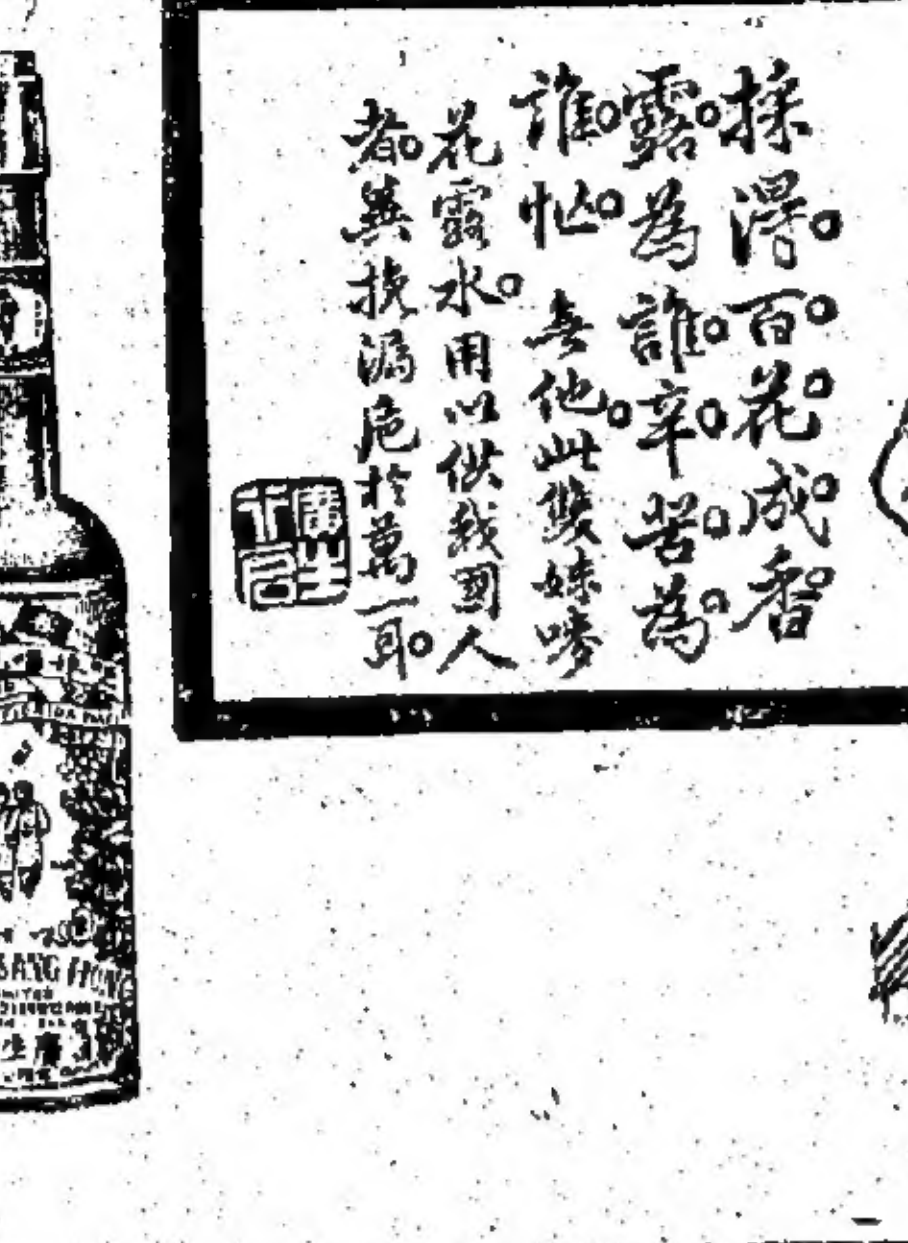 採得。百。花。成。香。
露。為誰。辛。苦。為。
誰。忙。無他。此雙妹嘜
花露水。用以供我國人
者。冀挽漏卮於萬一耳。
廣生
SANG HONG
生廣